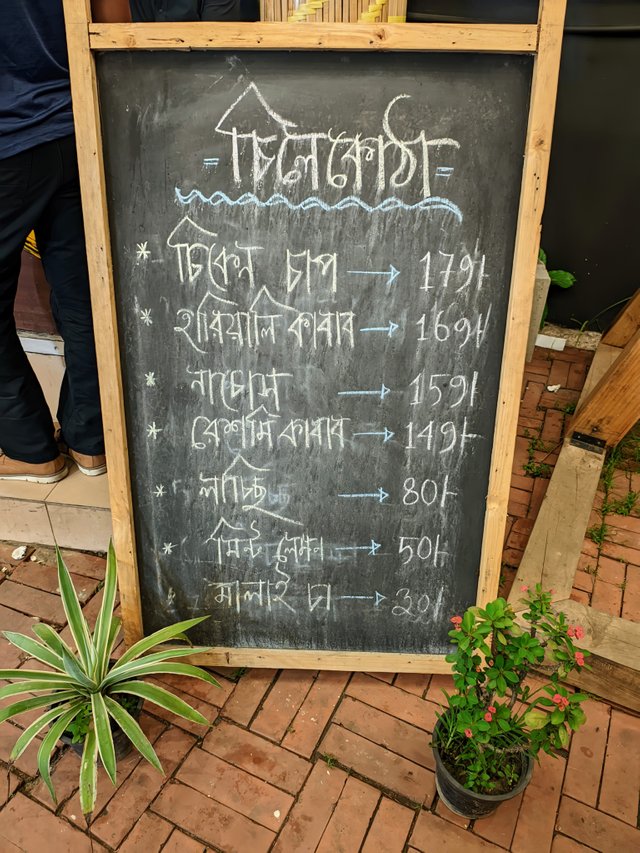 = চিলেকোঠা =
* চিকেন চাপ → 179/-
* হরিয়ালি কাবাব → 169/-
* নাচোস → 159/-
* রেশমি কাবাব → 149/-
* লাচ্ছি → 80/-
* মিন্ট লেমন → 50/-
মালাই চা → 30/-